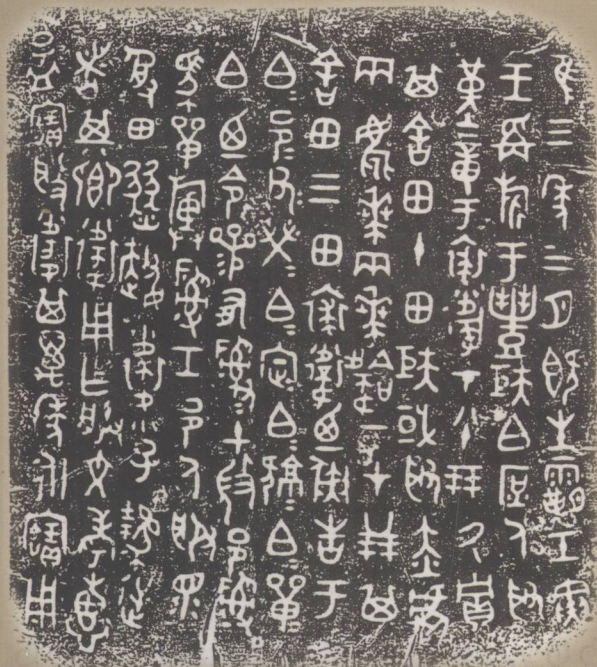 隹三年三月既生霸壬寅
王爯旂于豐矩白庶人取
堇章于裘衛才八十朋氒貯
其舍田十田矩或取赤虎
兩麀𠦪兩𠦪韐一才廿朋其
舍田三田裘衛乃彘告于
白=邑=父=榮=白=定=白=𤞷=白=單=
白=乃令參有𤔲𤔲土微邑𤔲
馬單旟𤔲工邑人服眾
受田燹趩衛小子逆
者其卿衛用乍朕文考惠
孟寶般衛其萬年永寶用